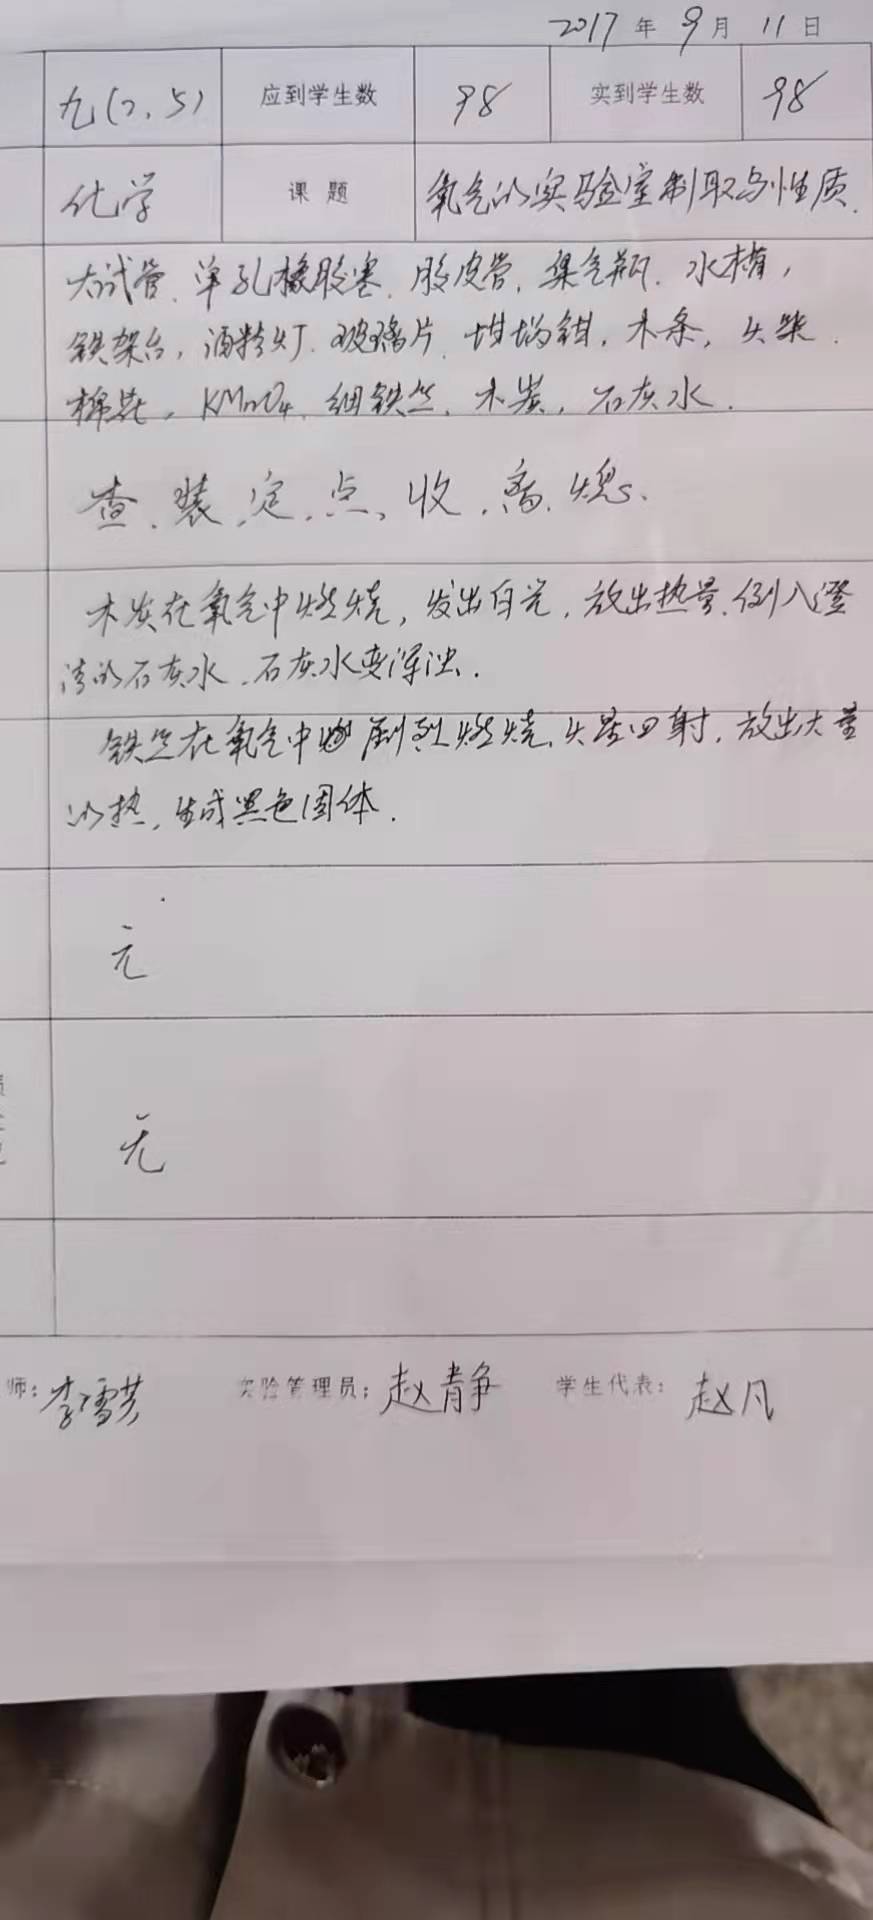 2017 年 9 月 11 日
九(2、5) 应到学生数 98 实到学生数 98
化学 课 题 氧气的实验室制取与性质.
大试管、单孔橡胶塞、胶皮管、集气瓶、水槽,
铁架台, 酒精灯、玻璃片、坩埚钳, 木条, 火柴.
棉花, KMnO4、细铁丝、木炭, 石灰水.
查、装、定、点、收、离、熄、
木炭在氧气中燃烧, 发出白光, 放出热量. 倒入澄
清的石灰水, 石灰水变浑浊.
铁丝在氧气中剧烈燃烧, 火星四射, 放出大量
的热, 生成黑色固体.
无
无
师: 李雪芸 实验管理员: 赵静 学生代表: 赵凡